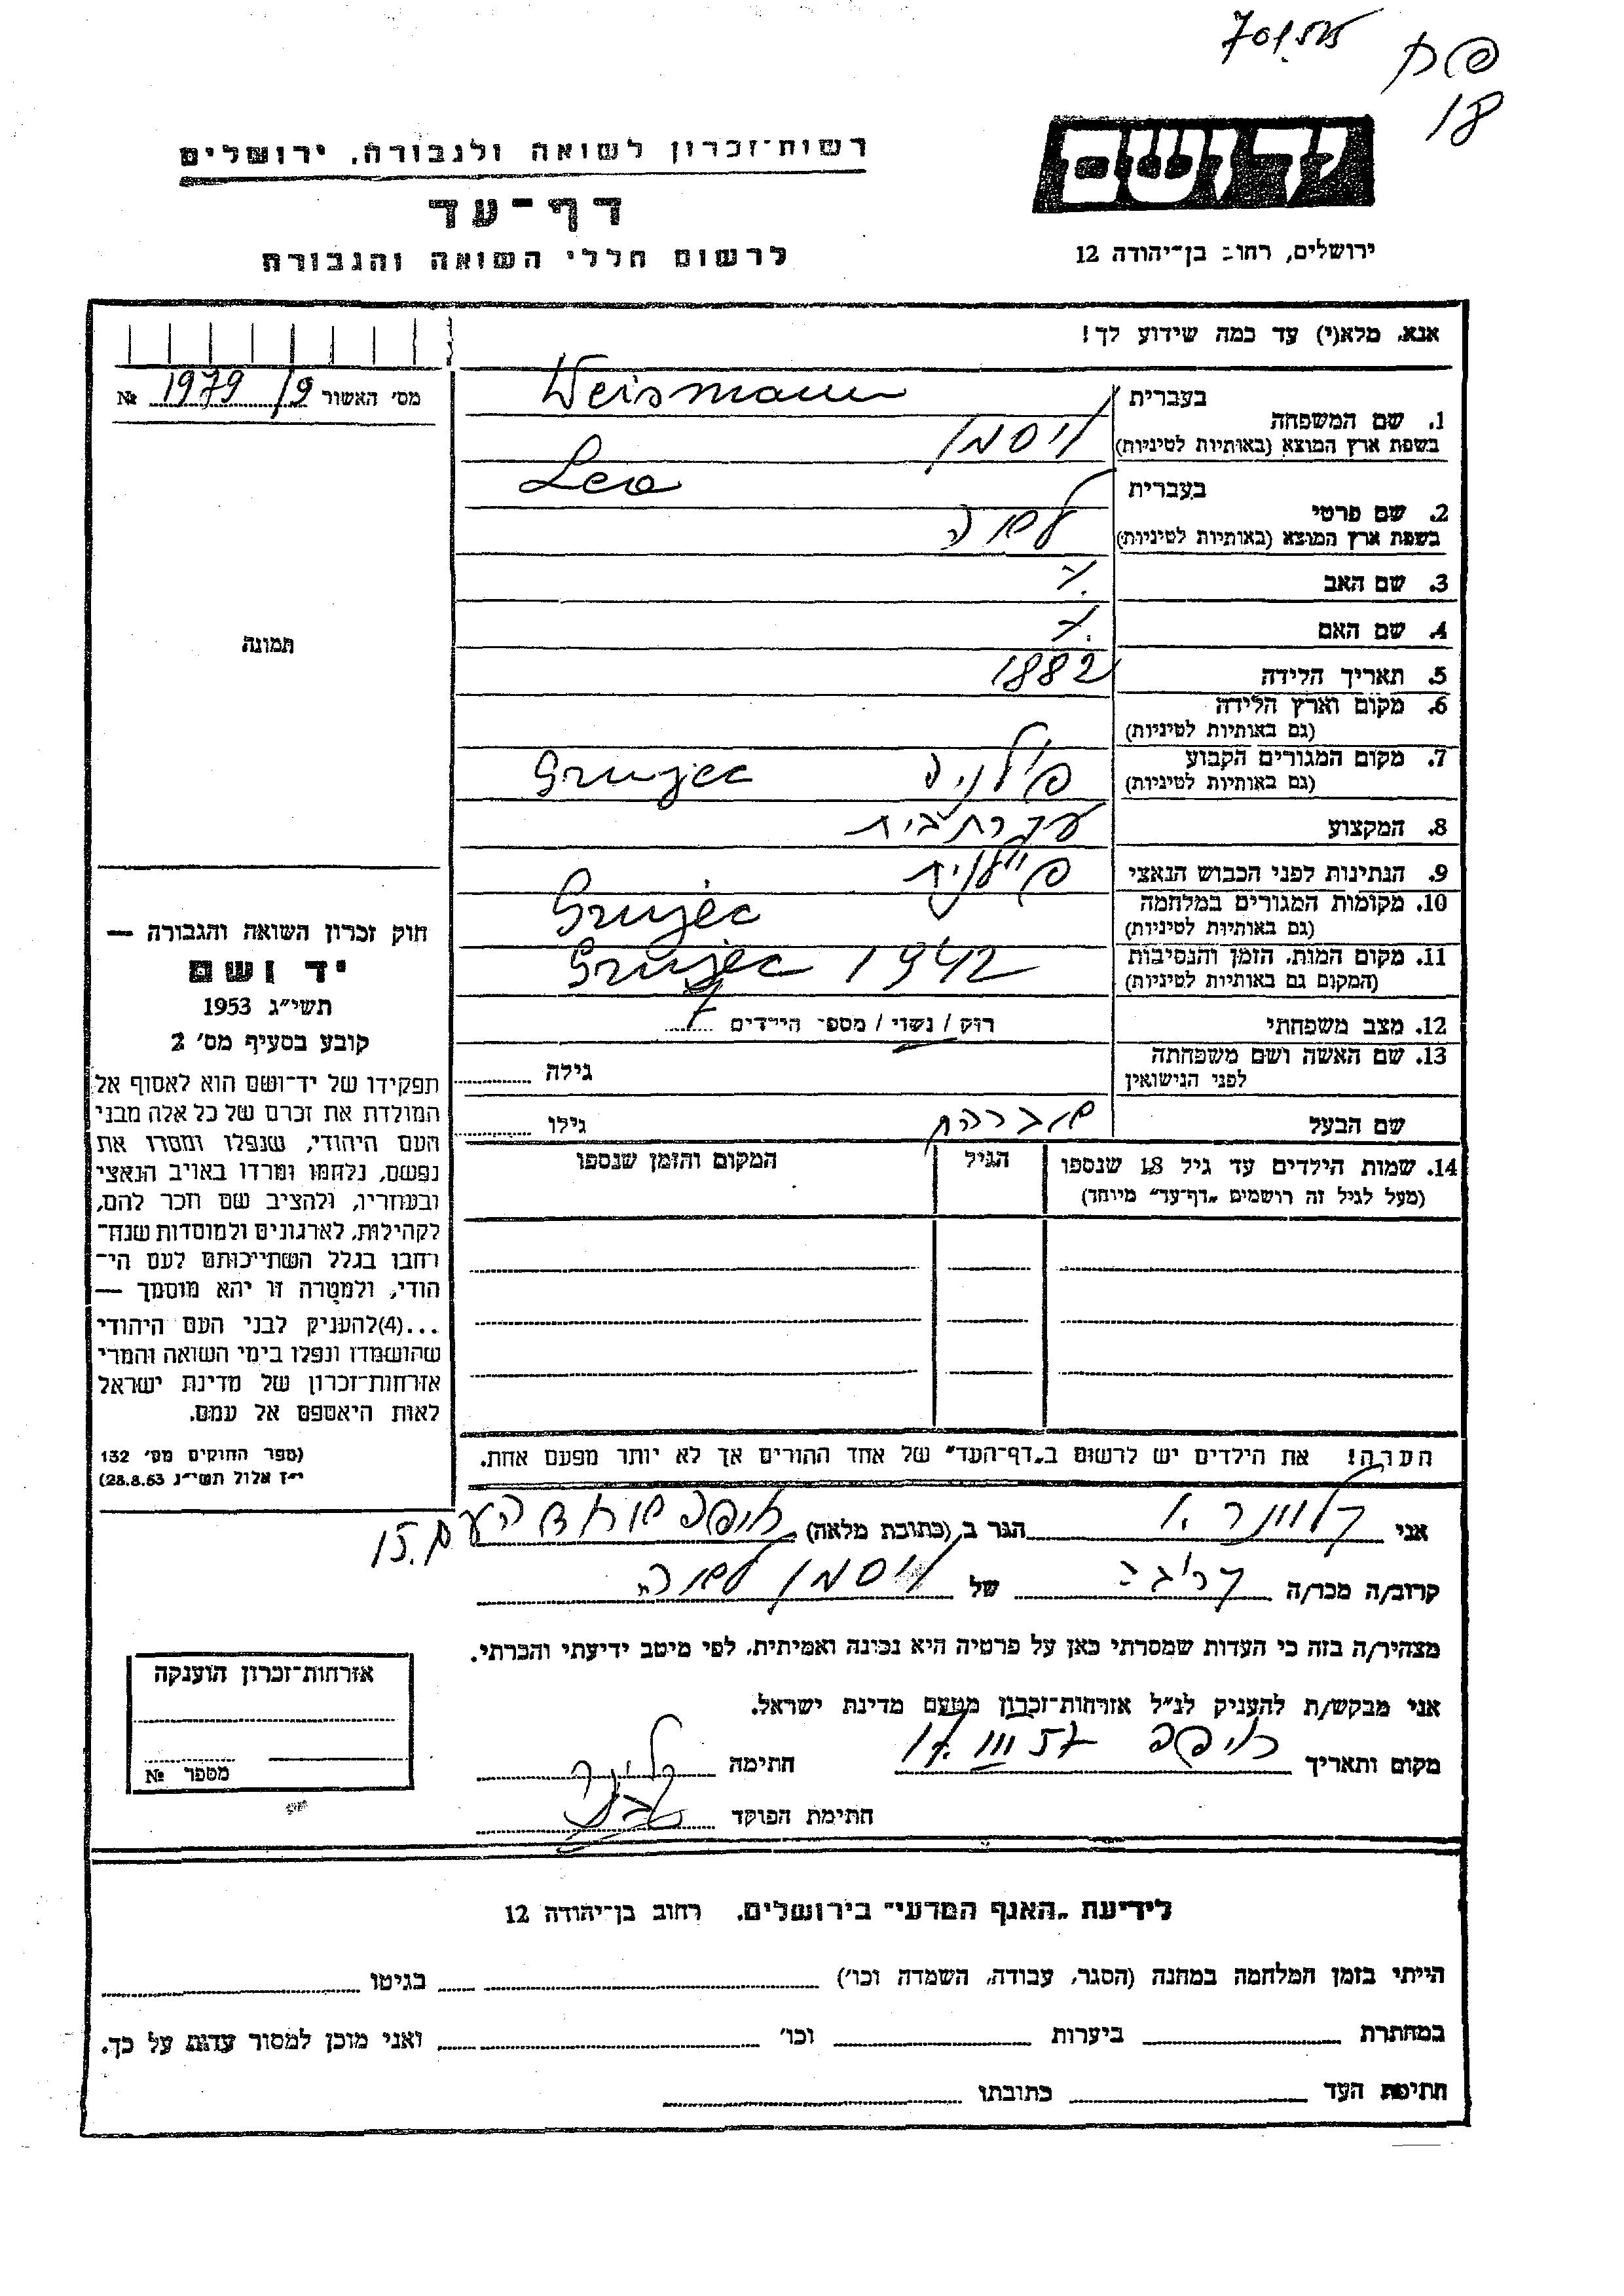 פח
18
יד ושם
ירושלים, רחוב בן־יהודה 12
רשות־זכרון לשואה ולגבורה, ירושלים
דף־עד
לרשום חללי השואה והגבורה
אנא, מלא(י) עד כמה שידוע לך!
מס' האשור 1979/9 №
תמונה
1. שם המשפחה
בעברית
Weismann
בשפת ארץ המוצא (באותיות לטיניות)
ויסמן
2. שם פרטי
בעברית
Lea
בשפת ארץ המוצא (באותיות לטיניות)
לאה
3. שם האב
4. שם האם
5. תאריך הלידה 1882
6. מקום וארץ הלידה
(גם באותיות לטיניות)
7. מקום המגורים הקבוע פולניה Grujec
(גם באותיות לטיניות)
8. המקצוע עקרת בית
9. הנתינות לפני הכבוש הנאצי פולנית
10. מקומות המגורים במלחמה Grujec
(גם באותיות לטיניות)
11. מקום המות, הזמן והנסיבות Grujec 1942
(המקום גם באותיות לטיניות)
12. מצב משפחתי רוק / נשוי / מספר הילדים 7
13. שם האשה ושם משפחתה
לפני הנישואין
גילה
שם הבעל אברהם גילו
14. שמות הילדים עד גיל 18 שנספו
(מעל לגיל זה רושמים „דף־עד" מיוחד)
הגיל
המקום והזמן שנספו
הערה! את הילדים יש לרשום ב„דף־העד" של אחד ההורים אך לא יותר מפעם אחת.
חוק זכרון השואה והגבורה —
יד ושם
תשי״ג 1953
קובע בסעיף מס' 2
תפקידו של יד־ושם הוא לאסוף אל
המולדת את זכרם של כל אלה מבני
העם היהודי, שנפלו ומסרו את
נפשם, נלחמו ומרדו באויב הנאצי
ובעוזריו, ולהציב שם וזכר להם,
לקהילות, לארגונים ולמוסדות שנח־
רבו בגלל השתייכותם לעם הי־
הודי, ולמטרה זו יהא מוסמך —
...(4)להעניק לבני העם היהודי
שהושמדו ונפלו בימי השואה והמרי
אזרחות־זכרון של מדינת ישראל
לאות היאספם אל עמם.
(ספר החוקים מס' 132
י״ז אלול תשי״ג 28.8.53)
אני קלוינר .א הגר ב (כתובת מלאה) חיפה אחד העם 15.
קרוב/ה מכר/ה קרובה של ויסמן לאה
מצהיר/ה בזה כי העדות שמסרתי כאן על פרטיה היא נכונה ואמיתית, לפי מיטב ידיעתי והכרתי.
אני מבקש/ת להעניק לנ״ל אזרחות־זכרון מטעם מדינת ישראל.
מקום ותאריך חיפה 17.III 57 חתימה
חתימת הפוקד
אזרחות־זכרון הוענקה
מספר №
לידיעת „האגף המדעי" בירושלים, רחוב בן־יהודה 12
הייתי בזמן המלחמה במחנה (הסגר, עבודה, השמדה וכו') בגיטו
במחתרת ביערות וכו' ואני מוכן למסור עדות על כך.
חתימת העד כתובתו